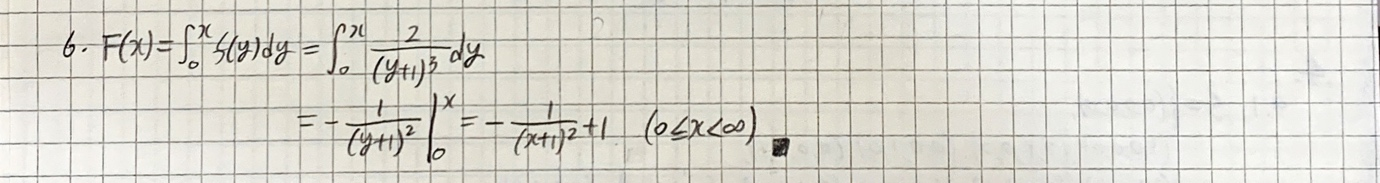 6. F(x)=∫₀ˣ f(y)dy = ∫₀ˣ 2/(y+1)³ dy
= - 1/(y+1)² |₀ˣ = - 1/(x+1)² +1 (0≤x<∞) ■